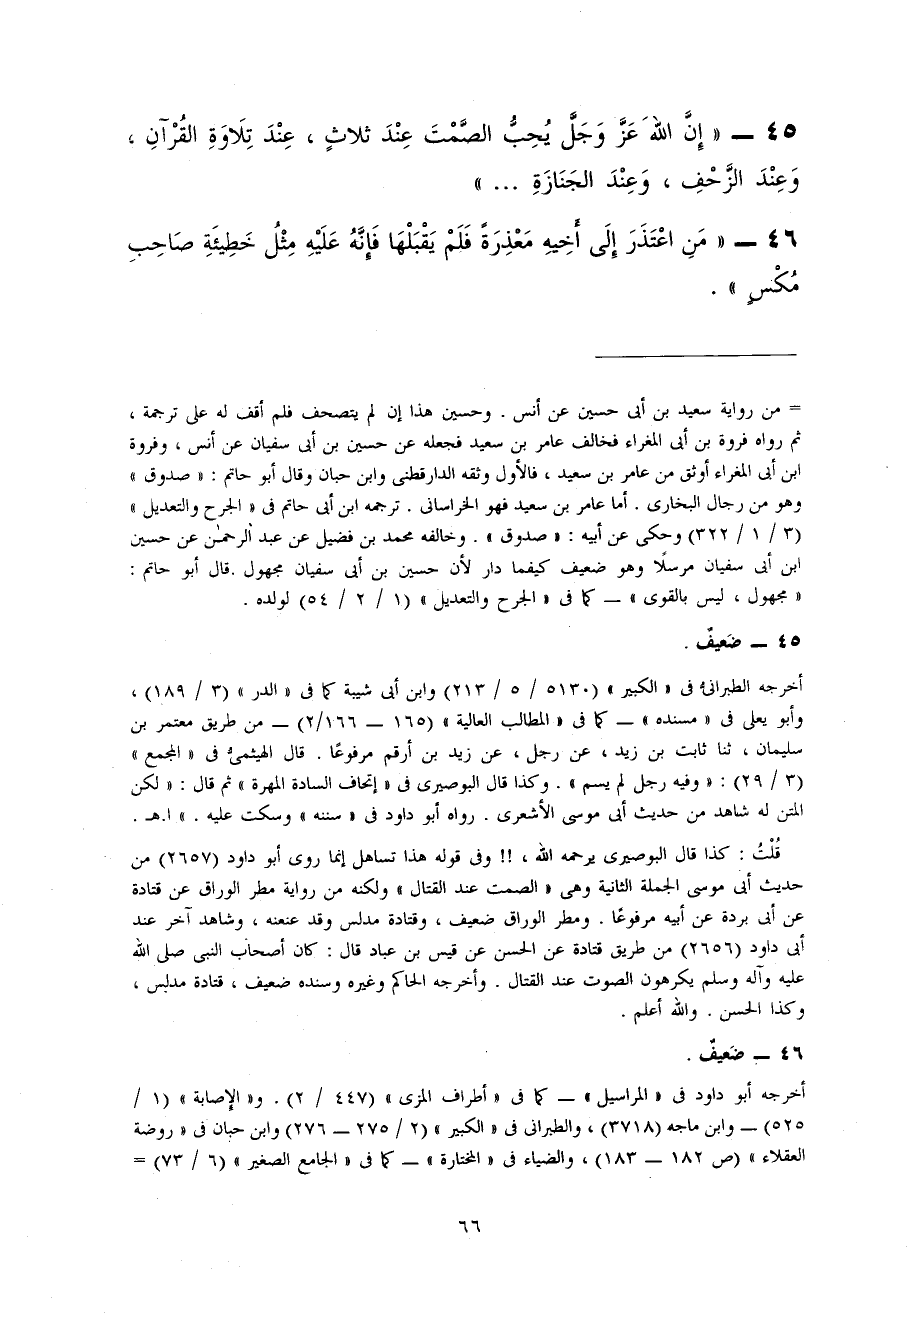 ٤٥ ــ « إِنَّ اللهَ عَزَّ وَجَلَّ يُحِبُّ الصَّمْتَ عِنْدَ ثلاثٍ ، عِنْدَ تِلَاوَةِ القُرْآنِ ،
وَعِنْدَ الزَّحْفِ ، وَعِنْدَ الجَنَازَةِ ... »
٤٦ ــ « مَنِ اعْتَذَرَ إِلَى أَخِيهِ مَعْذِرَةً فَلَمْ يَقْبَلْهَا فَإِنَّهُ عَلَيْهِ مِثْلُ خَطِيئَةِ صَاحِبِ
مُكْسٍ » .
= من رواية سعيد بن أبى حسين عن أنس . وحسين هذا إن لم يتصحف فلم أقف له على ترجمة ،
ثم رواه فروة بن أبى المغراء فخالف عامر بن سعيد فجعله عن حسين بن أبى سفيان عن أنس ، وفروة
ابن أبى المغراء أوثق من عامر بن سعيد ، فالأول وثقه الدارقطنى وابن حبان وقال أبو حاتم : « صدوق »
وهو من رجال البخارى . أما عامر بن سعيد فهو الخراسانى . ترجمه ابن أبى حاتم فى « الجرح والتعديل »
(٣ / ١ / ٣٢٢) وحكى عن أبيه : « صدوق » . وخالفه محمد بن فضيل عن عبد الرحمٰن عن حسين
ابن أبى سفيان مرسلًا وهو ضعيف كيفما دار لأن حسين بن أبى سفيان مجهول .قال أبو حاتم :
« مجهول ، ليس بالقوى » ــ كما فى « الجرح والتعديل » (١ / ٢ / ٥٤) لولده .
٤٥ ــ ضَعيفٌ .
أخرجه الطبرانىُّ فى « الكبير » (٥١٣٠ / ٥ / ٢١٣) وابن أبى شيبة كما فى « الدر » (٣ / ١٨٩) ،
وأبو يعلى فى « مسنده » ــ كما فى « المطالب العالية » (١٦٥ ــ ٢/١٦٦) ــ من طريق معتمر بن
سليمان ، ثنا ثابت بن زيد ، عن رجل ، عن زيد بن أرقم مرفوعًا . قال الهيثمىُّ فى « المجمع »
(٣ / ٢٩) : « وفيه رجل لم يسم » . وكذا قال البوصيرى فى « إتحاف السادة المهرة » ثم قال : « لكن
المتن له شاهد من حديث أبى موسى الأشعرى . رواه أبو داود فى « سننه » وسكت عليه . » ا.هـ .
قُلْتُ : كذا قال البوصيرى يرحمه الله ، !! وفى قوله هذا تساهل إنما روى أبو داود (٢٦٥٧) من
حديث أبى موسى الجملة الثانية وهى « الصمت عند القتال » ولكنه من رواية مطر الوراق عن قتادة
عن أبى بردة عن أبيه مرفوعًا . ومطر الوراق ضعيف ، وقتادة مدلس وقد عنعنه ، وشاهد آخر عند
أبى داود (٢٦٥٦) من طريق قتادة عن الحسن عن قيس بن عباد قال : كان أصحاب النبى صلى الله
عليه وآله وسلم يكرهون الصوت عند القتال . وأخرجه الحاكم وغيره وسنده ضعيف ، قتادة مدلس ،
وكذا الحسن . والله أعلم .
٤٦ ــ ضَعيفٌ .
أخرجه أبو داود فى « المراسيل » ــ كما فى « أطراف المزى » (٤٤٧ / ٢) . و« الإصابة » (١ /
٥٢٥) ــ وابن ماجه (٣٧١٨) ، والطبرانى فى « الكبير » (٢ / ٢٧٥ ــ ٢٧٦) وابن حبان فى « روضة
العقلاء » (ص ١٨٢ ــ ١٨٣) ، والضياء فى « المختارة » ــ كما فى « الجامع الصغير » (٦ / ٧٣) =
٦٦